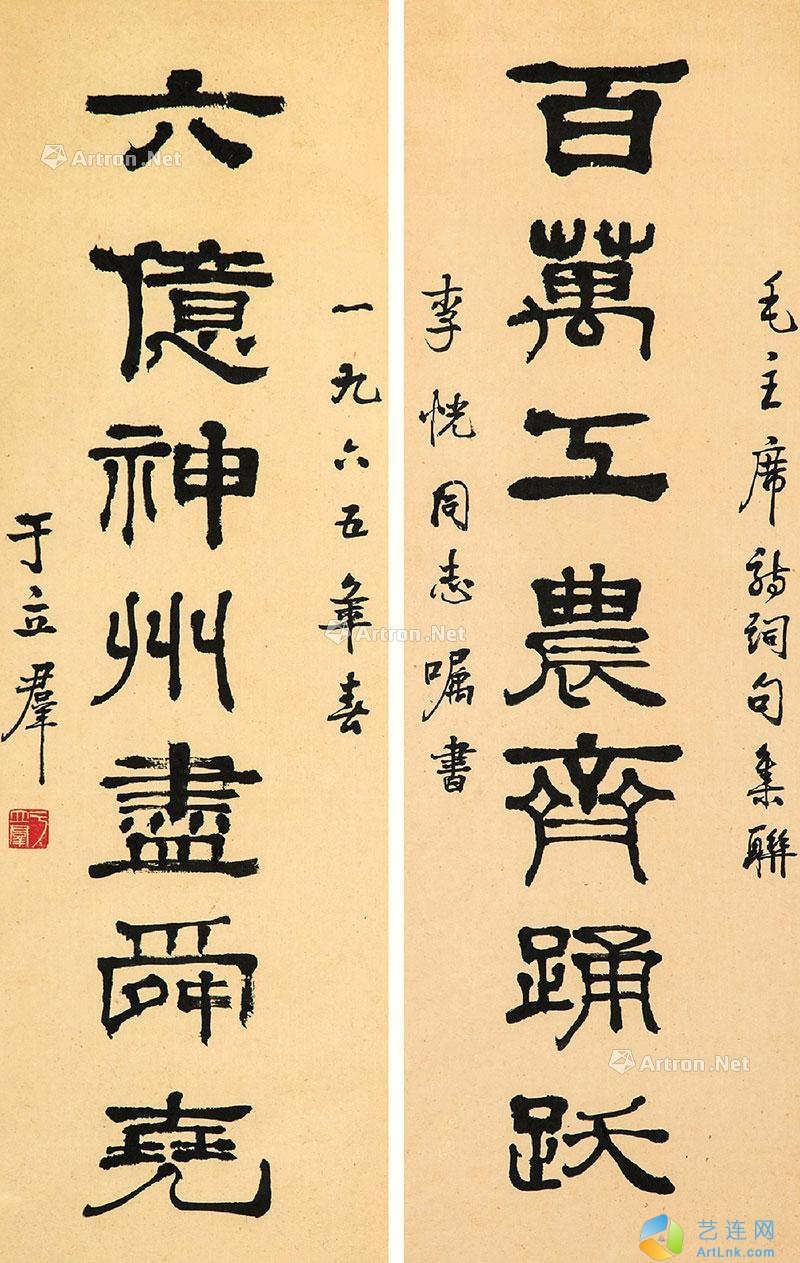 毛主席詩詞句集聯
百萬工農齊踊跃
李恍同志嘱書
一九六五年春
六億神州盡舜堯
于立羣
Artron.Net
Artron.Net
Artron.Net
Artron.Net
艺连网
ArtLnk.com